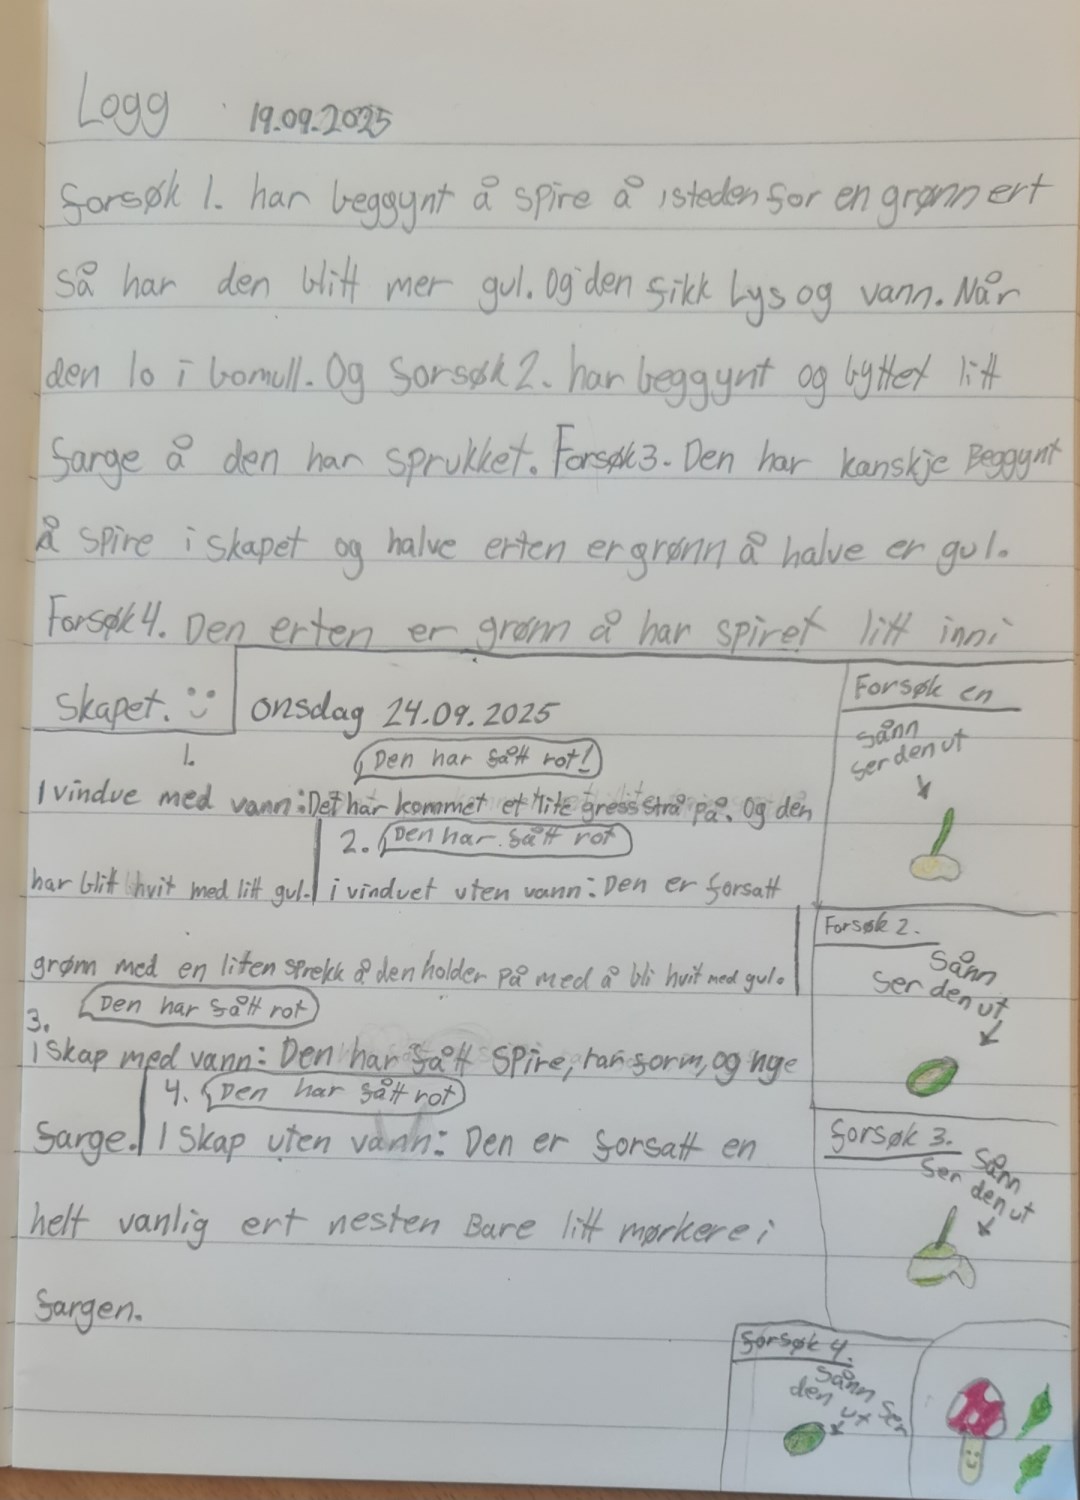 Logg 19.09.2025
forsøk 1. har beggynt å spire å isteden for en grønn ert
så har den blitt mer gul. Og den fikk Lys og vann. Når
den lo i bomull. Og forsøk 2. har beggynt og byttet litt
farge å den har sprukket. Forsøk 3. Den har kanskje Beggynt
å spire i skapet og halve erten er grønn å halve er gul.
Forsøk 4. Den erten er grønn å har spiret litt inni
skapet. onsdag 24.09.2025
1. Den har fått rot!
I vindve med vann: Det har kommet et lite gress strå på. Og den
har blitt hvit med litt gul.
2. Den har fått rot
i vinduet uten vann: Den er forsatt
grønn med en liten sprekk å den holder på med å bli hvit med gul.
3. Den har fått rot
i skap med vann: Den har fått spire, rar form, og nye
farge.
4. Den har fått rot
I skap uten vann: Den er forsatt en
helt vanlig ert nesten Bare litt mørkere i
fargen.
Forsøk en
Sånn
ser den ut
Forsøk 2.
Sånn
ser den ut
forsøk 3.
Sånn
ser den ut
forsøk 4.
Sånn ser
den ut